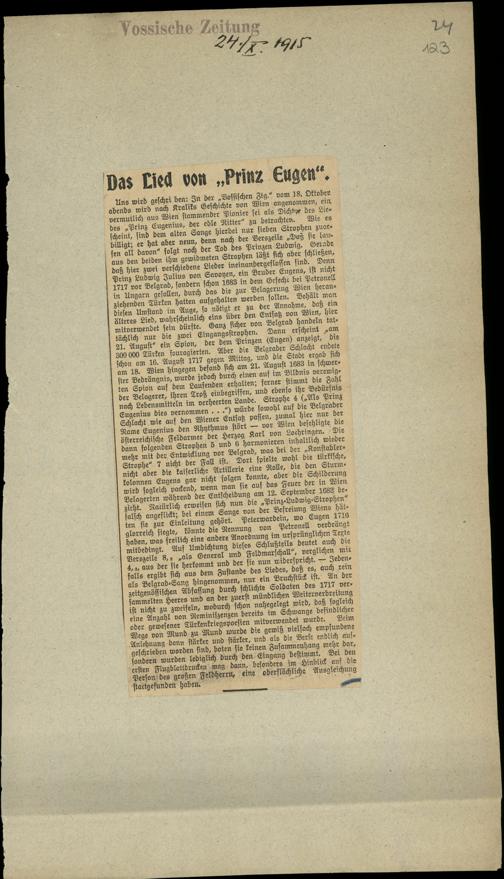 Vossische Zeitung
24./X. 1915
24
123
Das Lied von „Prinz Eugen“.
Uns wird geschrieben: In der „Vossischen Ztg.“ vom 18. Oktober
abends wird nach Kraliks Geschichte von Wien angenommen, ein
vermutlich aus Wien stammender Pionier sei als Dichter des Lie-
des „Prinz Eugenius, der edle Ritter“ zu betrachten. Wie es
scheint, sind dem alten Sange hierbei nur sieben Strophen zuge-
billigt; er hat aber neun, denn nach der Verszeile „Daß sie lau-
fen all davon“ folgt noch der Tod des Prinzen Ludwig. Gerade
aus den beiden ihm gewidmeten Strophen läßt sich aber schließen,
daß hier zwei verschiedene Lieder ineinandergeflossen sind. Denn
Prinz Ludwig Julius von Savoyen, ein Bruder Eugens, ist nicht
1717 vor Belgrad, sondern schon 1683 in dem Gefecht bei Petronell
in Ungarn gefallen, durch das die zur Belagerung Wien heran-
ziehenden Türken hatten aufgehalten werden sollen. Behält man
diesen Umstand im Auge, so nötigt er zu der Annahme, daß ein
älteres Lied, wahrscheinlich eins über den Entsatz von Wien, hier
mitverwendet sein dürfte. Ganz sicher von Belgrad handeln tat-
sächlich nur die zwei Eingangsstrophen. Dann erscheint „am
21. August“ ein Spion, der dem Prinzen (Eugen) anzeigt, die
300 000 Türken fouragierten. Aber die Belgrader Schlacht endete
schon am 16. August 1717 gegen Mittag, und die Stadt ergab sich
am 18. Wien hingegen befand sich am 21. August 1683 in schwer-
ster Bedrängnis, wurde jedoch durch einen auf im Bildnis verewig-
ten Spion auf den Laufenden erhalten; ferner stimmt die Zahl
der Belagerer, ihren Troß einbegriffen, und ebenso ihr Bedürfnis
nach Lebensmitteln im verheerten Lande. Strophe 4 („Als Prinz
Eugenius dies vernommen . . .“) würde sowohl auf die Belgrader
Schlacht wie auf den Wiener Entsatz passen, zumal hier nur der
Name Eugenius den Rhythmus stört — vor Wien befehligte die
österreichische Feldarmee der Herzog Karl von Lothringen. Die
dann folgenden Strophen 5 und 6 harmonieren inhaltlich wieder
mehr mit der Entwicklung vor Belgrad, was bei der „Konstabler-
Strophe“ 7 nicht der Fall ist. Dort spielte wohl die türkische,
nicht aber die kaiserliche Artillerie eine Rolle, die den Sturm-
kolonnen Eugens gar nicht folgen konnte, aber die Schilderung
wird sogleich packend, wenn man sie auf das Feuer der in Wien
Belagerten während der Entscheidung am 12. September 1683 be-
zieht. Natürlich erweisen sich nun die „Prinz-Ludwig-Strophen“
falsch angeflickt; bei einem Sange von der Befreiung Wiens hät-
ten sie zur Einleitung gehört. Peterwardein, wo Eugen 1716
glorreich siegte, könnte die Nennung von Petronell verdrängt
haben, was freilich eine andere Anordnung im ursprünglichen Texte
mitbedingt. Auf Umdichtung dieses Schlußteils deutet auch die
Verszeile 8, „als General und Feldmarschall“, verglichen mit
aus der sie herkommt und der sie nun widerspricht. — Jeden-
falls ergibt sich aus dem Zustande des Liedes, daß es, auch rein
als Belgrad-Sang hingenommen, nur ein Bruchstück ist. An der
zeitgenössischen Abfassung durch schlichte Soldaten des 1717 ver-
sammelten Heeres und an der zuerst mündlichen Weiterverbreitung
ist nicht zu zweifeln, wodurch schon nahegelegt wird, daß sogleich
eine Anzahl von Reminiszenzen bereits im Schwange befindlicher
oder gewesener Türkenkriegspoesien mitverwendet wurde. Beim
Wege von Mund zu Mund wurde die gewiß vielfach empfundene
Anlehnung dann stärker und stärker, und als die Verse endlich auf-
geschrieben worden sind, boten sie keinen Zusammenhang mehr dar,
sondern wurden lediglich durch den Eingang bestimmt. Bei den
ersten Flugblattdrucken mag dann, besonders im Hinblick auf die
Person des großen Feldherrn, eine oberflächliche Ausgleichung
stattgefunden haben.